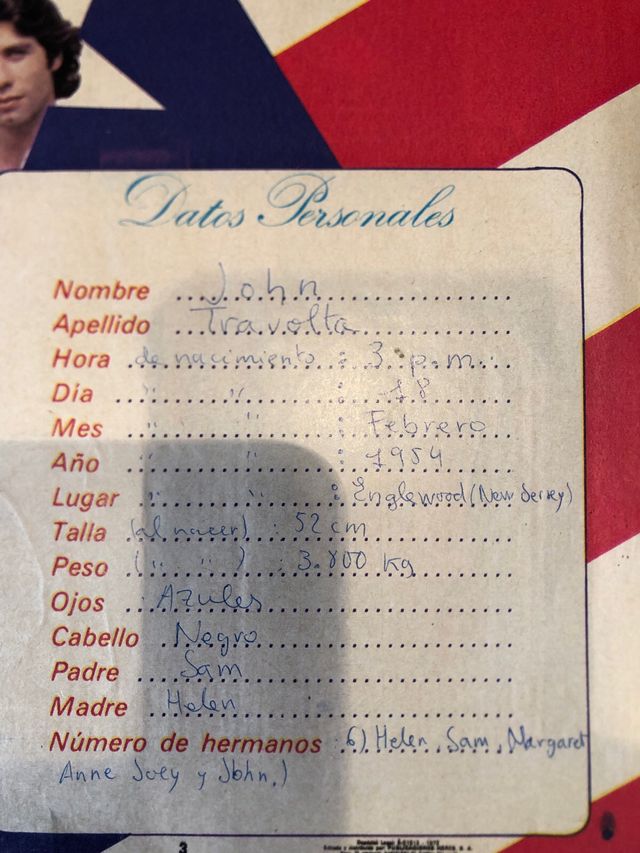 Datos Personales
Nombre John
Apellido Travolta
Hora de nacimiento : 3 p.m.
Dia " " : 18
Mes " " : Febrero
Año " " : 1954
Lugar " " : Englewood (New Jersey)
Talla (al nacer) : 52 cm
Peso (" ") : 3.800 kg
Ojos : Azules
Cabello Negro
Padre Sam
Madre Helen
Número de hermanos 6), Helen, Sam, Margaret
Anne Joey y John.)
3